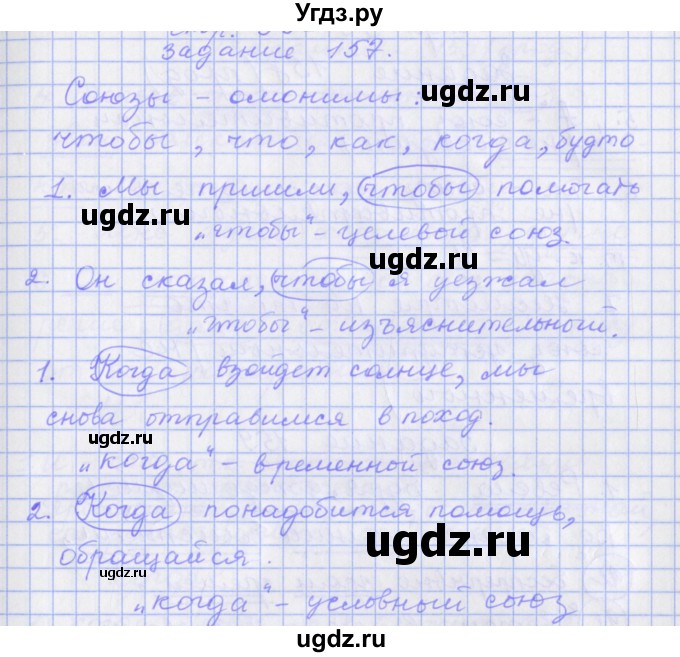 Угдз.ру
задание 157.
Союзы - омонимы:
чтобы, что, как, когда, будто
1. Мы пришли, чтобы помогать
„чтобы“ - целевой союз
2. Он сказал, чтобы я уезжал
„чтобы“ - изъяснительный.
1. Когда взойдет солнце, мы
снова отправимся в поход.
„когда“ - временной союз.
2. Когда понадобится помощь,
обращайся.
„когда“ - условный союз
ugdz.ru
ugdz.ru
ugdz.ru
ugdz.ru
ugdz.ru
ugdz.ru
ugdz.ru
ugdz.ru